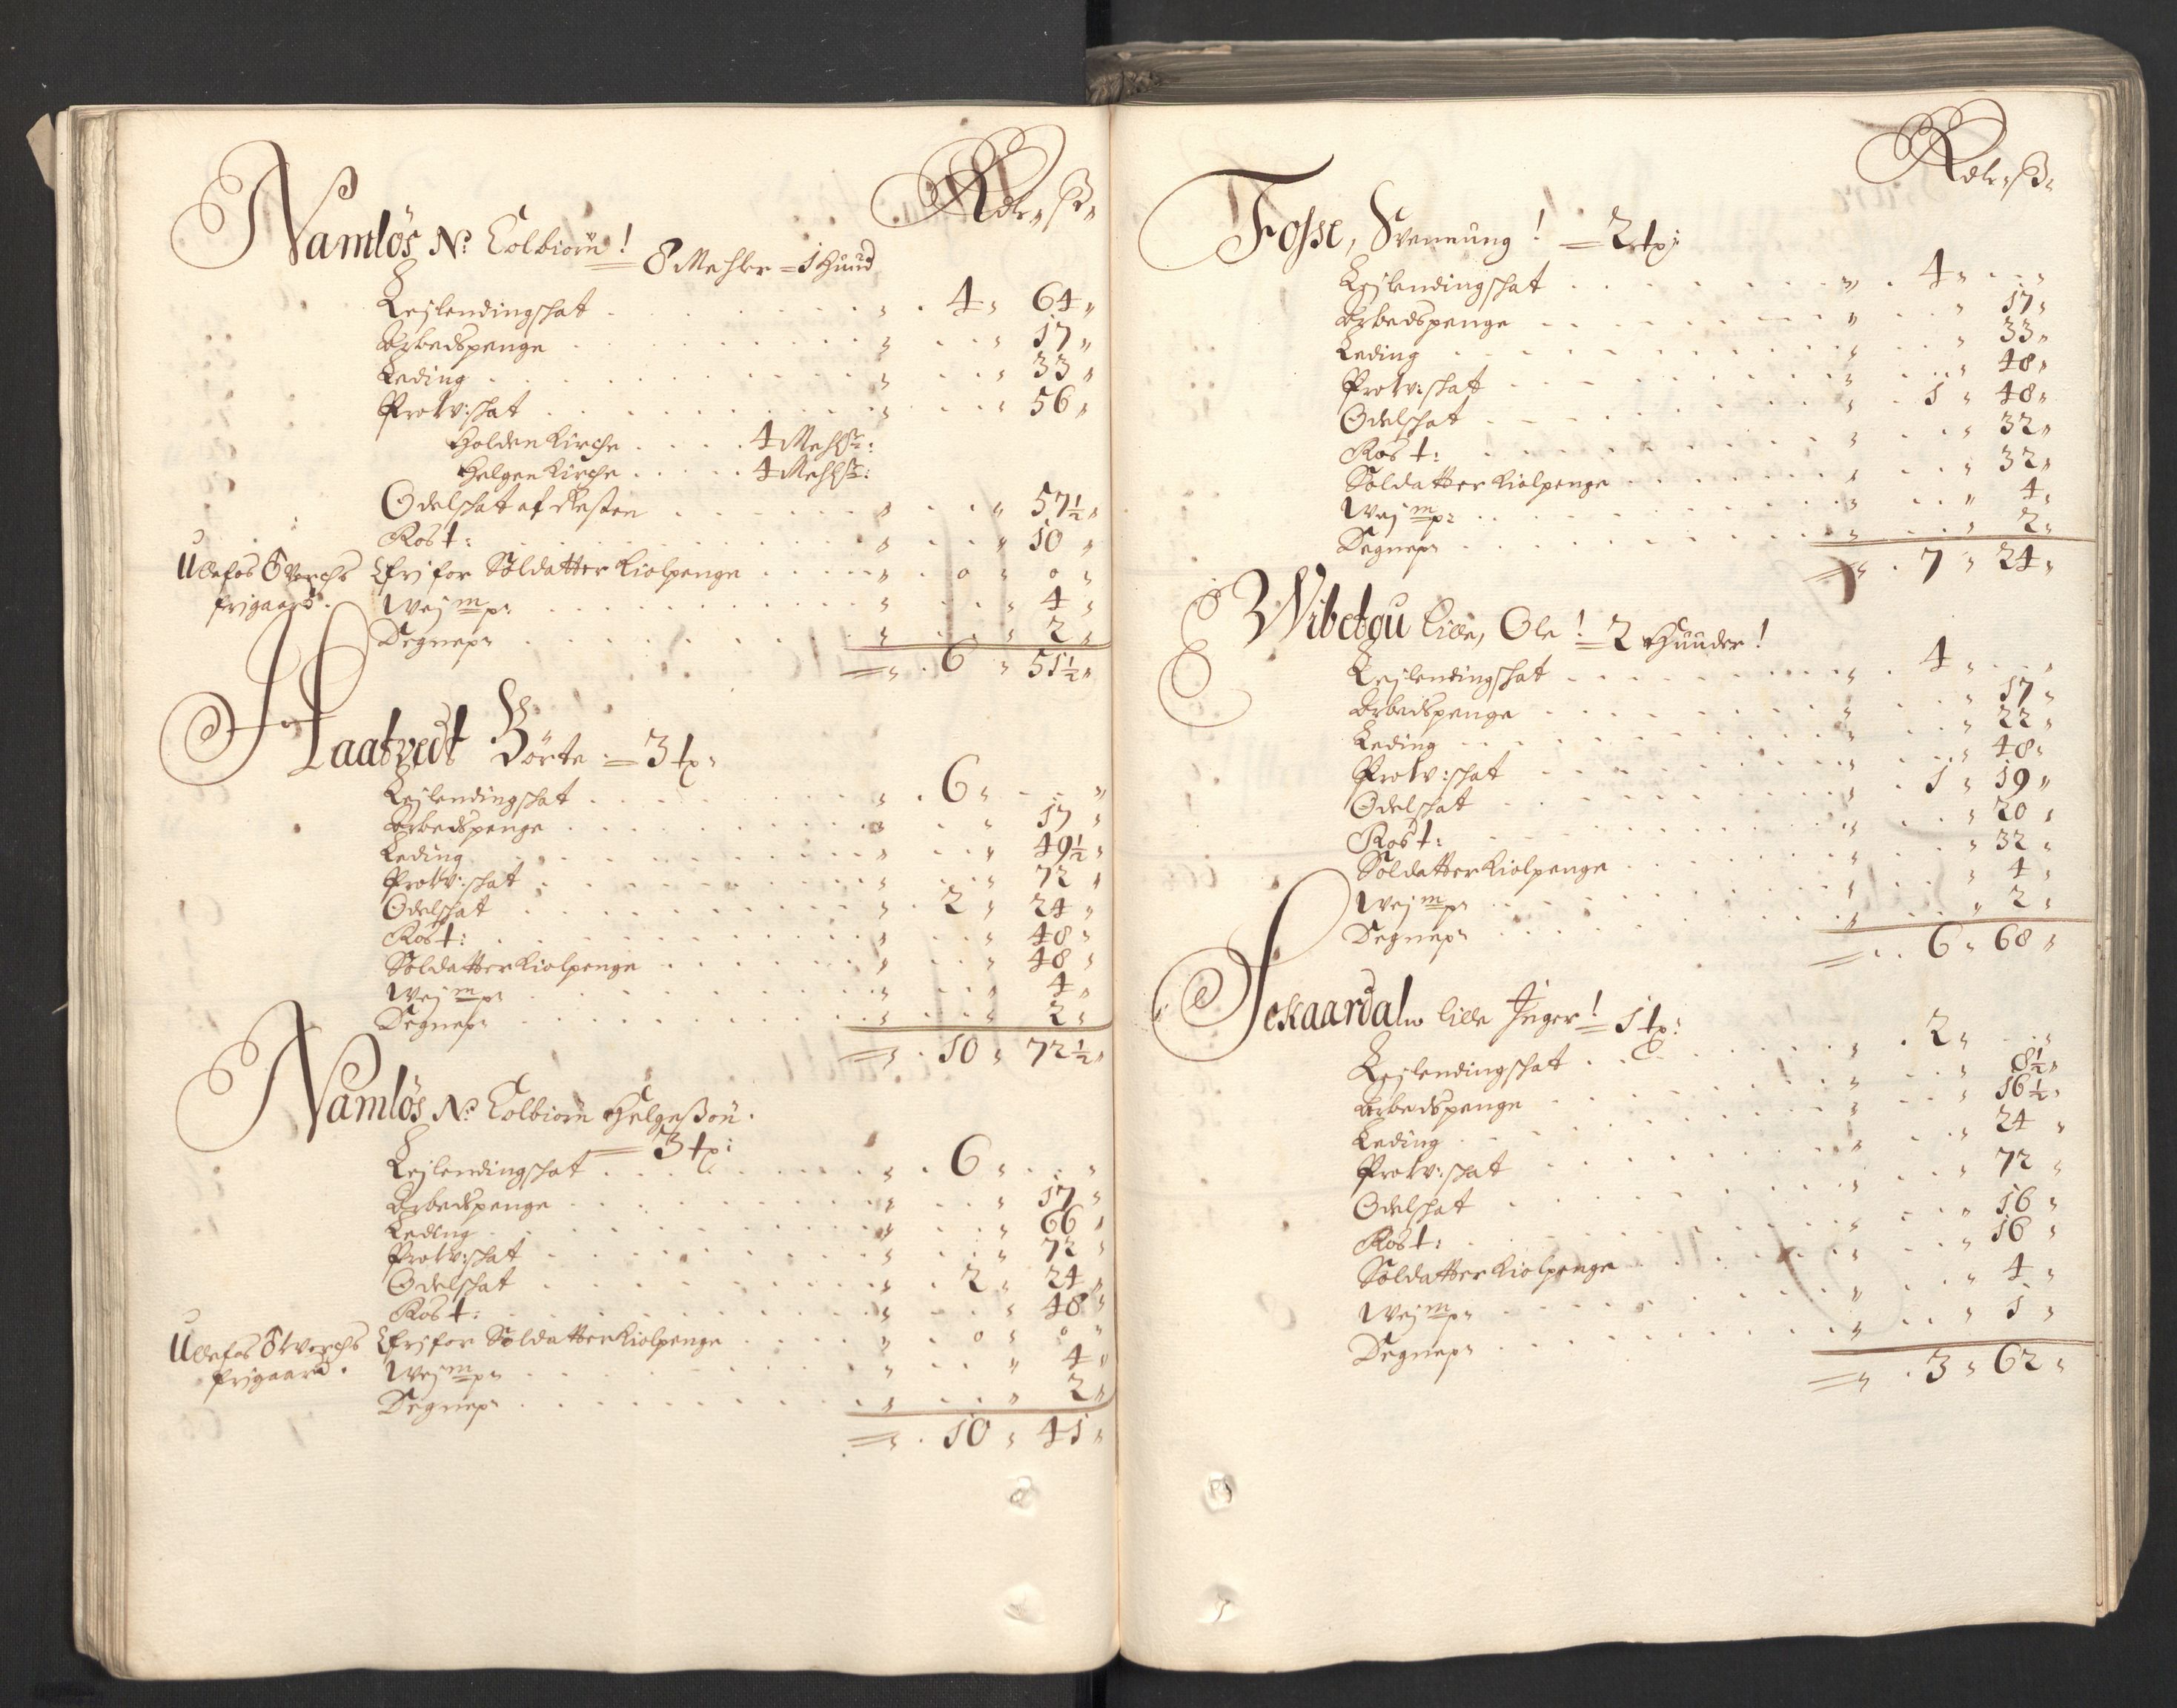 Rdr, ß,
Namlös N: Tolbiörn! 8 Mehler = 1 Huud
Leylendingschat . . . 4, 64,
Arbedspenge . . . 17,
Leding . . . 33,
Prow:schat . . . 56,
Holden Kirche . . . 4 Mehlr:
Helgen Kirche . . . 4 Mehlr:
Odelschat af Resten . . . 57½,
Ros t: . . . 10,
Ulefos Werchs frigaard. Efri for Soldatter Kiolpenge . . . 0, 0,
Wej mp: . . . 4,
Degnep: . . . 2,
= . 6, 51½,
Haatvedt Börte = 3 tp:
Leylendingschat . . . 6,
Arbedspenge . . . 17,
Leding . . . 49½,
Prow:schat . . . 72,
Odelschat . . . 2, 24,
Ros t: . . . 48,
Soldatter Kiolpenge . . . 48,
Wej mp: . . . 4,
Degnep: . . . 2,
= . 10, 72½,
Namlös N: Tolbiörn Helgeßön.
= 3 tp:
Leylendingschat . . . 6,
Arbedspenge . . . 17,
Leding . . . 66,
Prow:schat . . . 72,
Odelschat . . . 2, 24,
Ros t: . . . 48,
Ulefos Werchs frigaard. Efri for Soldatter Kiolpenge . . . 0, 0,
Wej mp: . . . 4,
Degnep: . . . 2,
= . 10, 41,
Rdr, ß,
Fosse, Svennung! = 2 tp:
Leylendingschat . . . 4,
Arbedspenge . . . 17,
Leding . . . 33,
Prow:schat . . . 48,
Odelschat . . . 1, 48,
Ros t: . . . 32,
Soldatter Kiolpenge . . . 32,
Wej mp: . . . 4,
Degnep: . . . 2,
= . 7, 24,
Wibetou lille, Ole! = 2 Huuder!
Leylendingschat . . . 4,
Arbedspenge . . . 17,
Leding . . . 22,
Prow:schat . . . 48,
Odelschat . . . 1, 19,
Ros t: . . . 20,
Soldatter Kiolpenge . . . 32,
Wej mp: . . . 4,
Degnep: . . . 2,
= . 6, 68,
lille Inger! = 1 tp:
Leylendingschat . . . 2,
Arbedspenge . . . 8½,
Leding . . . 16½,
Prow:schat . . . 24,
Odelschat . . . 72,
Ros t: . . . 16,
Soldatter Kiolpenge . . . 16,
Wej mp: . . . 4,
Degnep: . . . 1,
= . 3, 62,